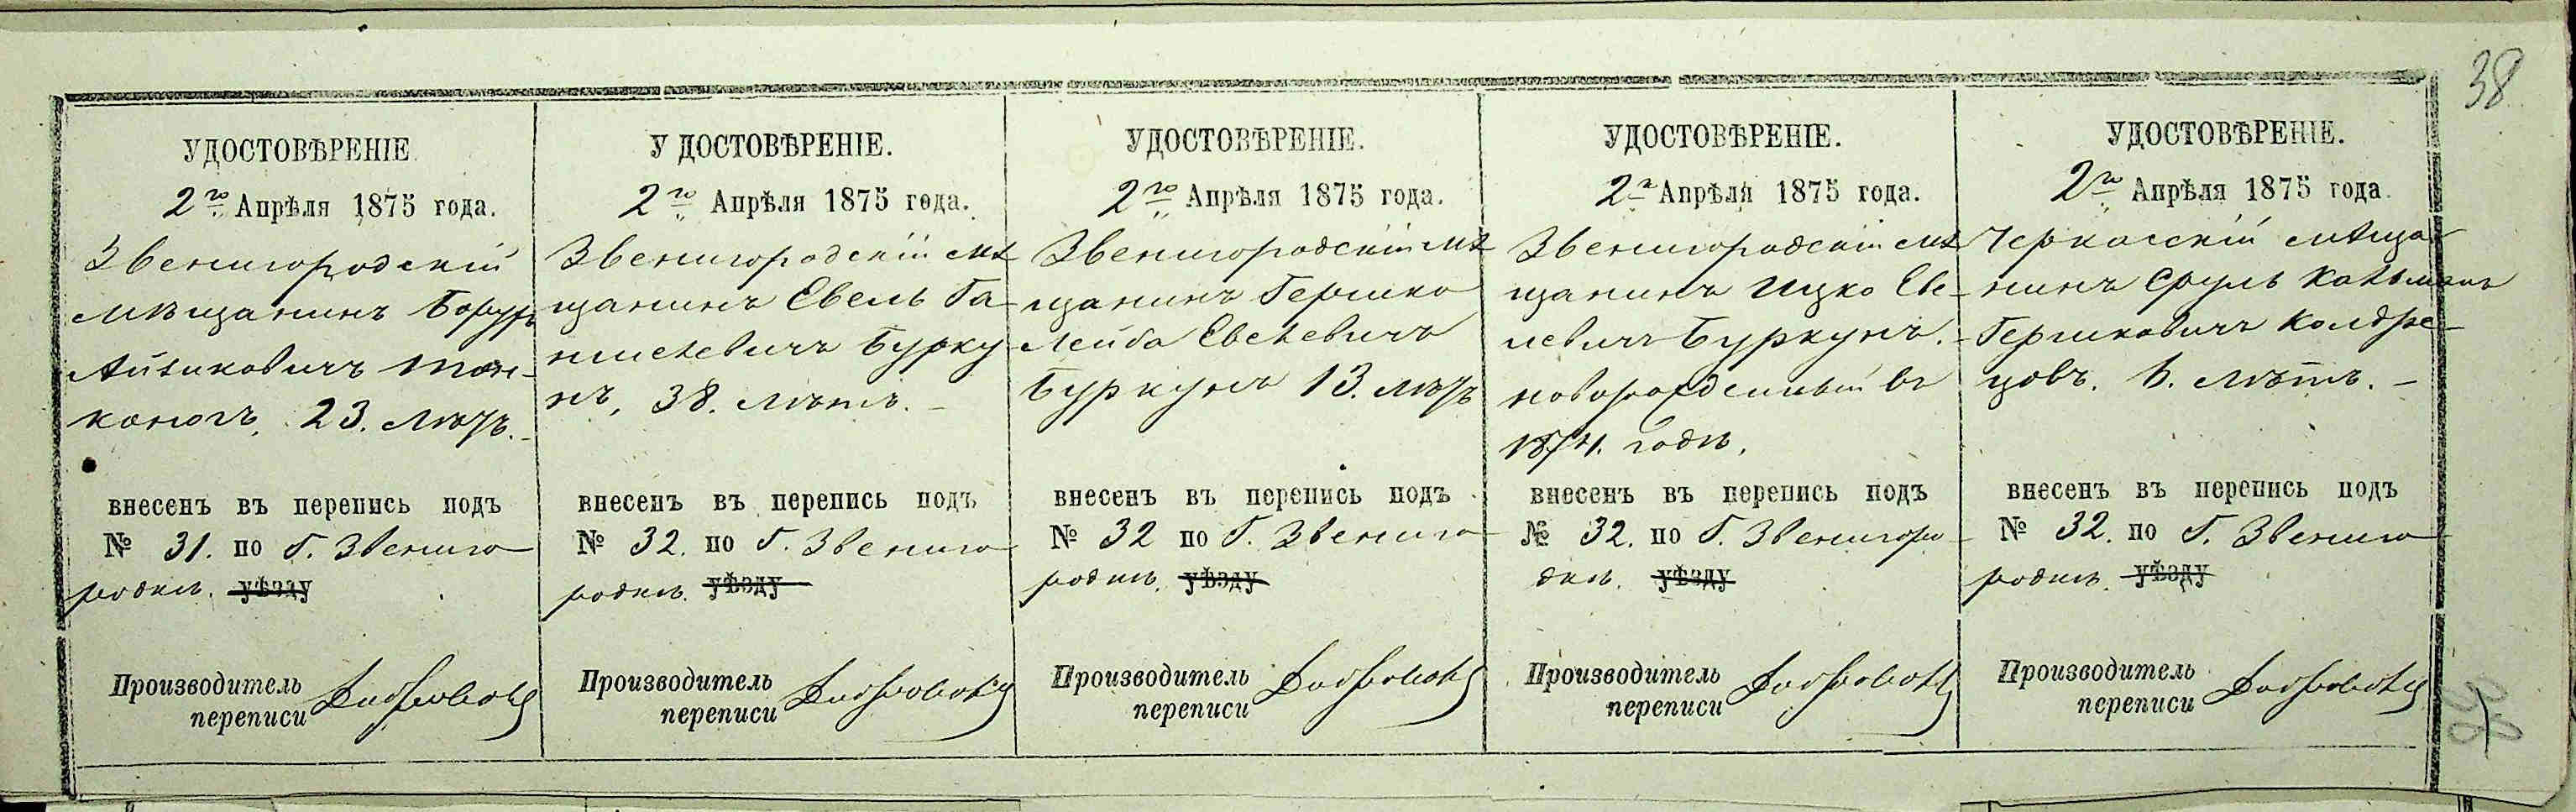 38
УДОСТОВѢРЕНІЕ
2го Апрѣля 1875 года.
Звенигородскій
мѣщанинъ Борухъ
Айзиковичъ
23. лѣтъ.
внесенъ въ перепись подъ
№ 31. по Г. Звениго
родкѣ. уѣзду
Производитель
переписи
УДОСТОВѢРЕНІЕ.
2го Апрѣля 1875 года.
Звенигородскій мѣ
щанинъ Евель Га
Бурку
нъ, 38. лѣтъ. –
внесенъ въ перепись подъ
№ 32. по Г. Звениго
родкѣ. уѣзду
Производитель
переписи
УДОСТОВѢРЕНІЕ.
2го Апрѣля 1875 года.
Звенигородскій мѣ
щанинъ Гершко
Лейба Евелевичъ
Буркунъ 13. лѣтъ
внесенъ въ перепись подъ
№ 32 по Г. Звениго
родкѣ. уѣзду
Производитель
переписи
УДОСТОВѢРЕНІЕ.
2го Апрѣля 1875 года.
Звенигородскій мѣ
щанинъ Ицко Еве-
левичъ Буркунъ. -
новорожденный въ
1874. годѣ.
внесенъ въ перепись подъ
№ 32. по Г. Звенигоро
дкѣ. уѣзду
Производитель
переписи
УДОСТОВѢРЕНІЕ.
2го Апрѣля 1875 года.
Черкасскій мѣща-
нинъ Сруль Кальманъ
Гершковичъ
лѣтъ. –
внесенъ въ перепись подъ
№ 32. по Г. Звениго
родкѣ. уѣзду
Производитель
переписи